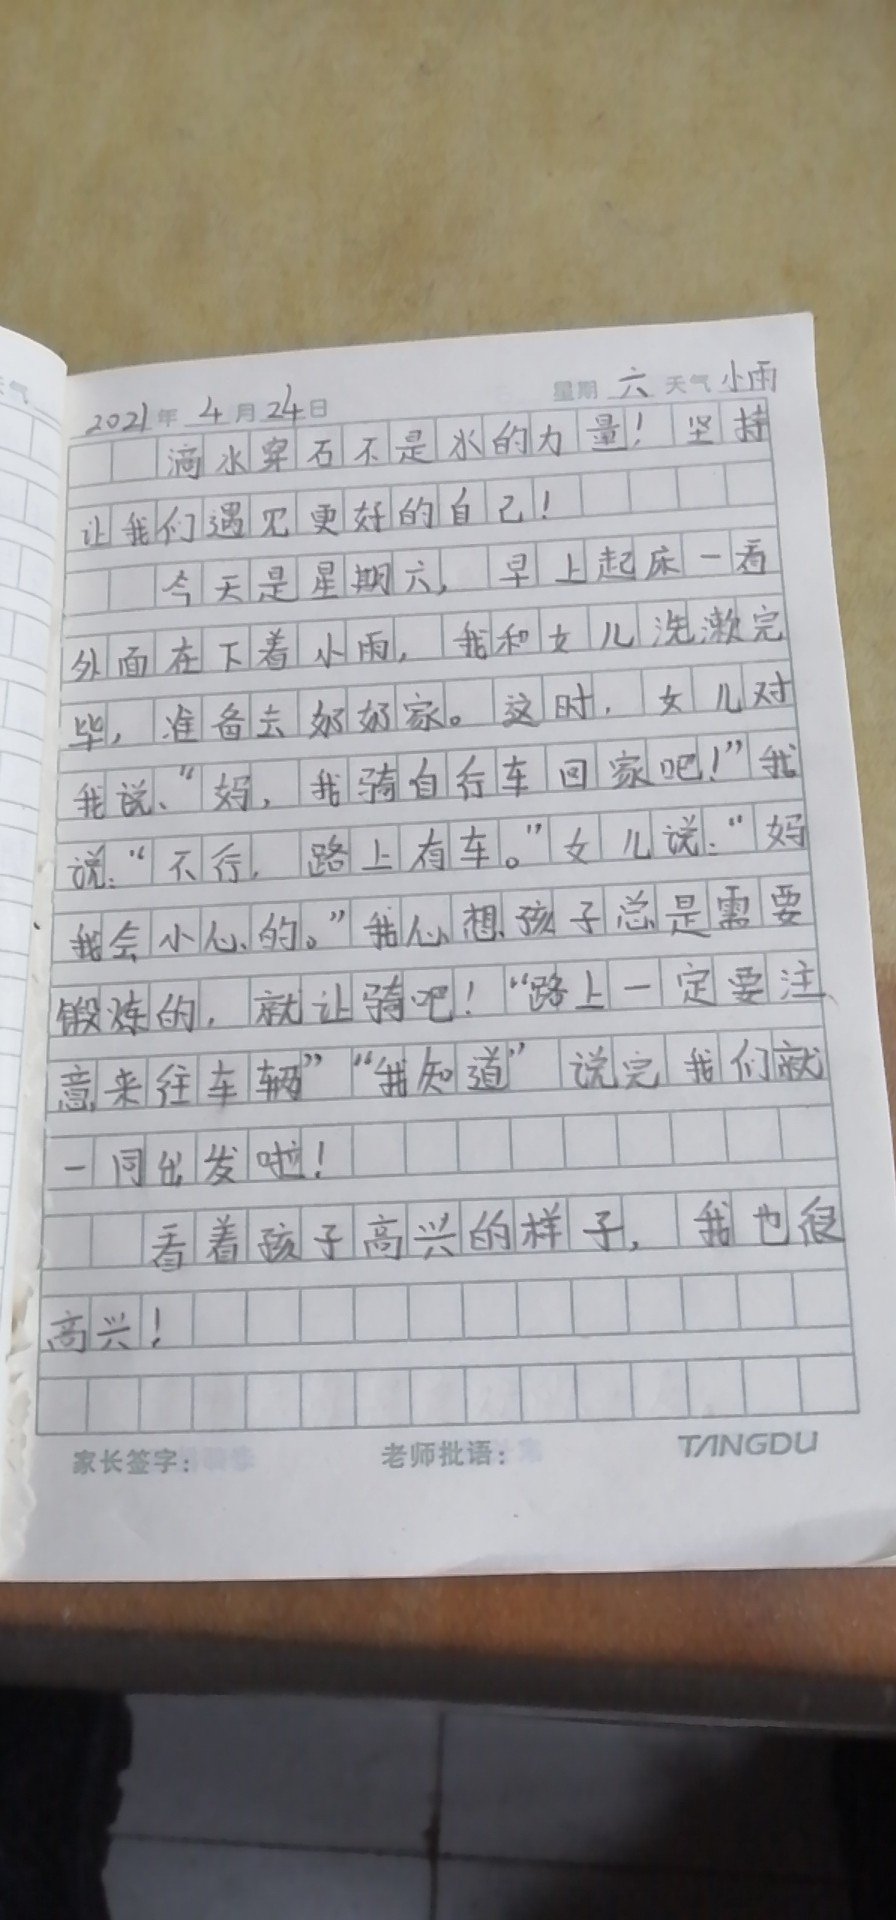 天气
2021年 4月24日 星期 六 天气 小雨
滴水穿石不是水的力量！坚持
让我们遇见更好的自己！
今天是星期六，早上起床一看
外面在下着小雨，我和女儿洗漱完
毕，准备去奶奶家。这时，女儿对
我说：“妈，我骑自行车回家吧！”我
说：“不行，路上有车。”女儿说：“妈
我会小心的。”我心想，孩子总是需要
锻炼的，就让骑吧！“路上一定要注
意来往车辆”“我知道”说完我们就
一同出发啦！
看着孩子高兴的样子，我也很
高兴！
家长签字： 老师批语： TANGDU